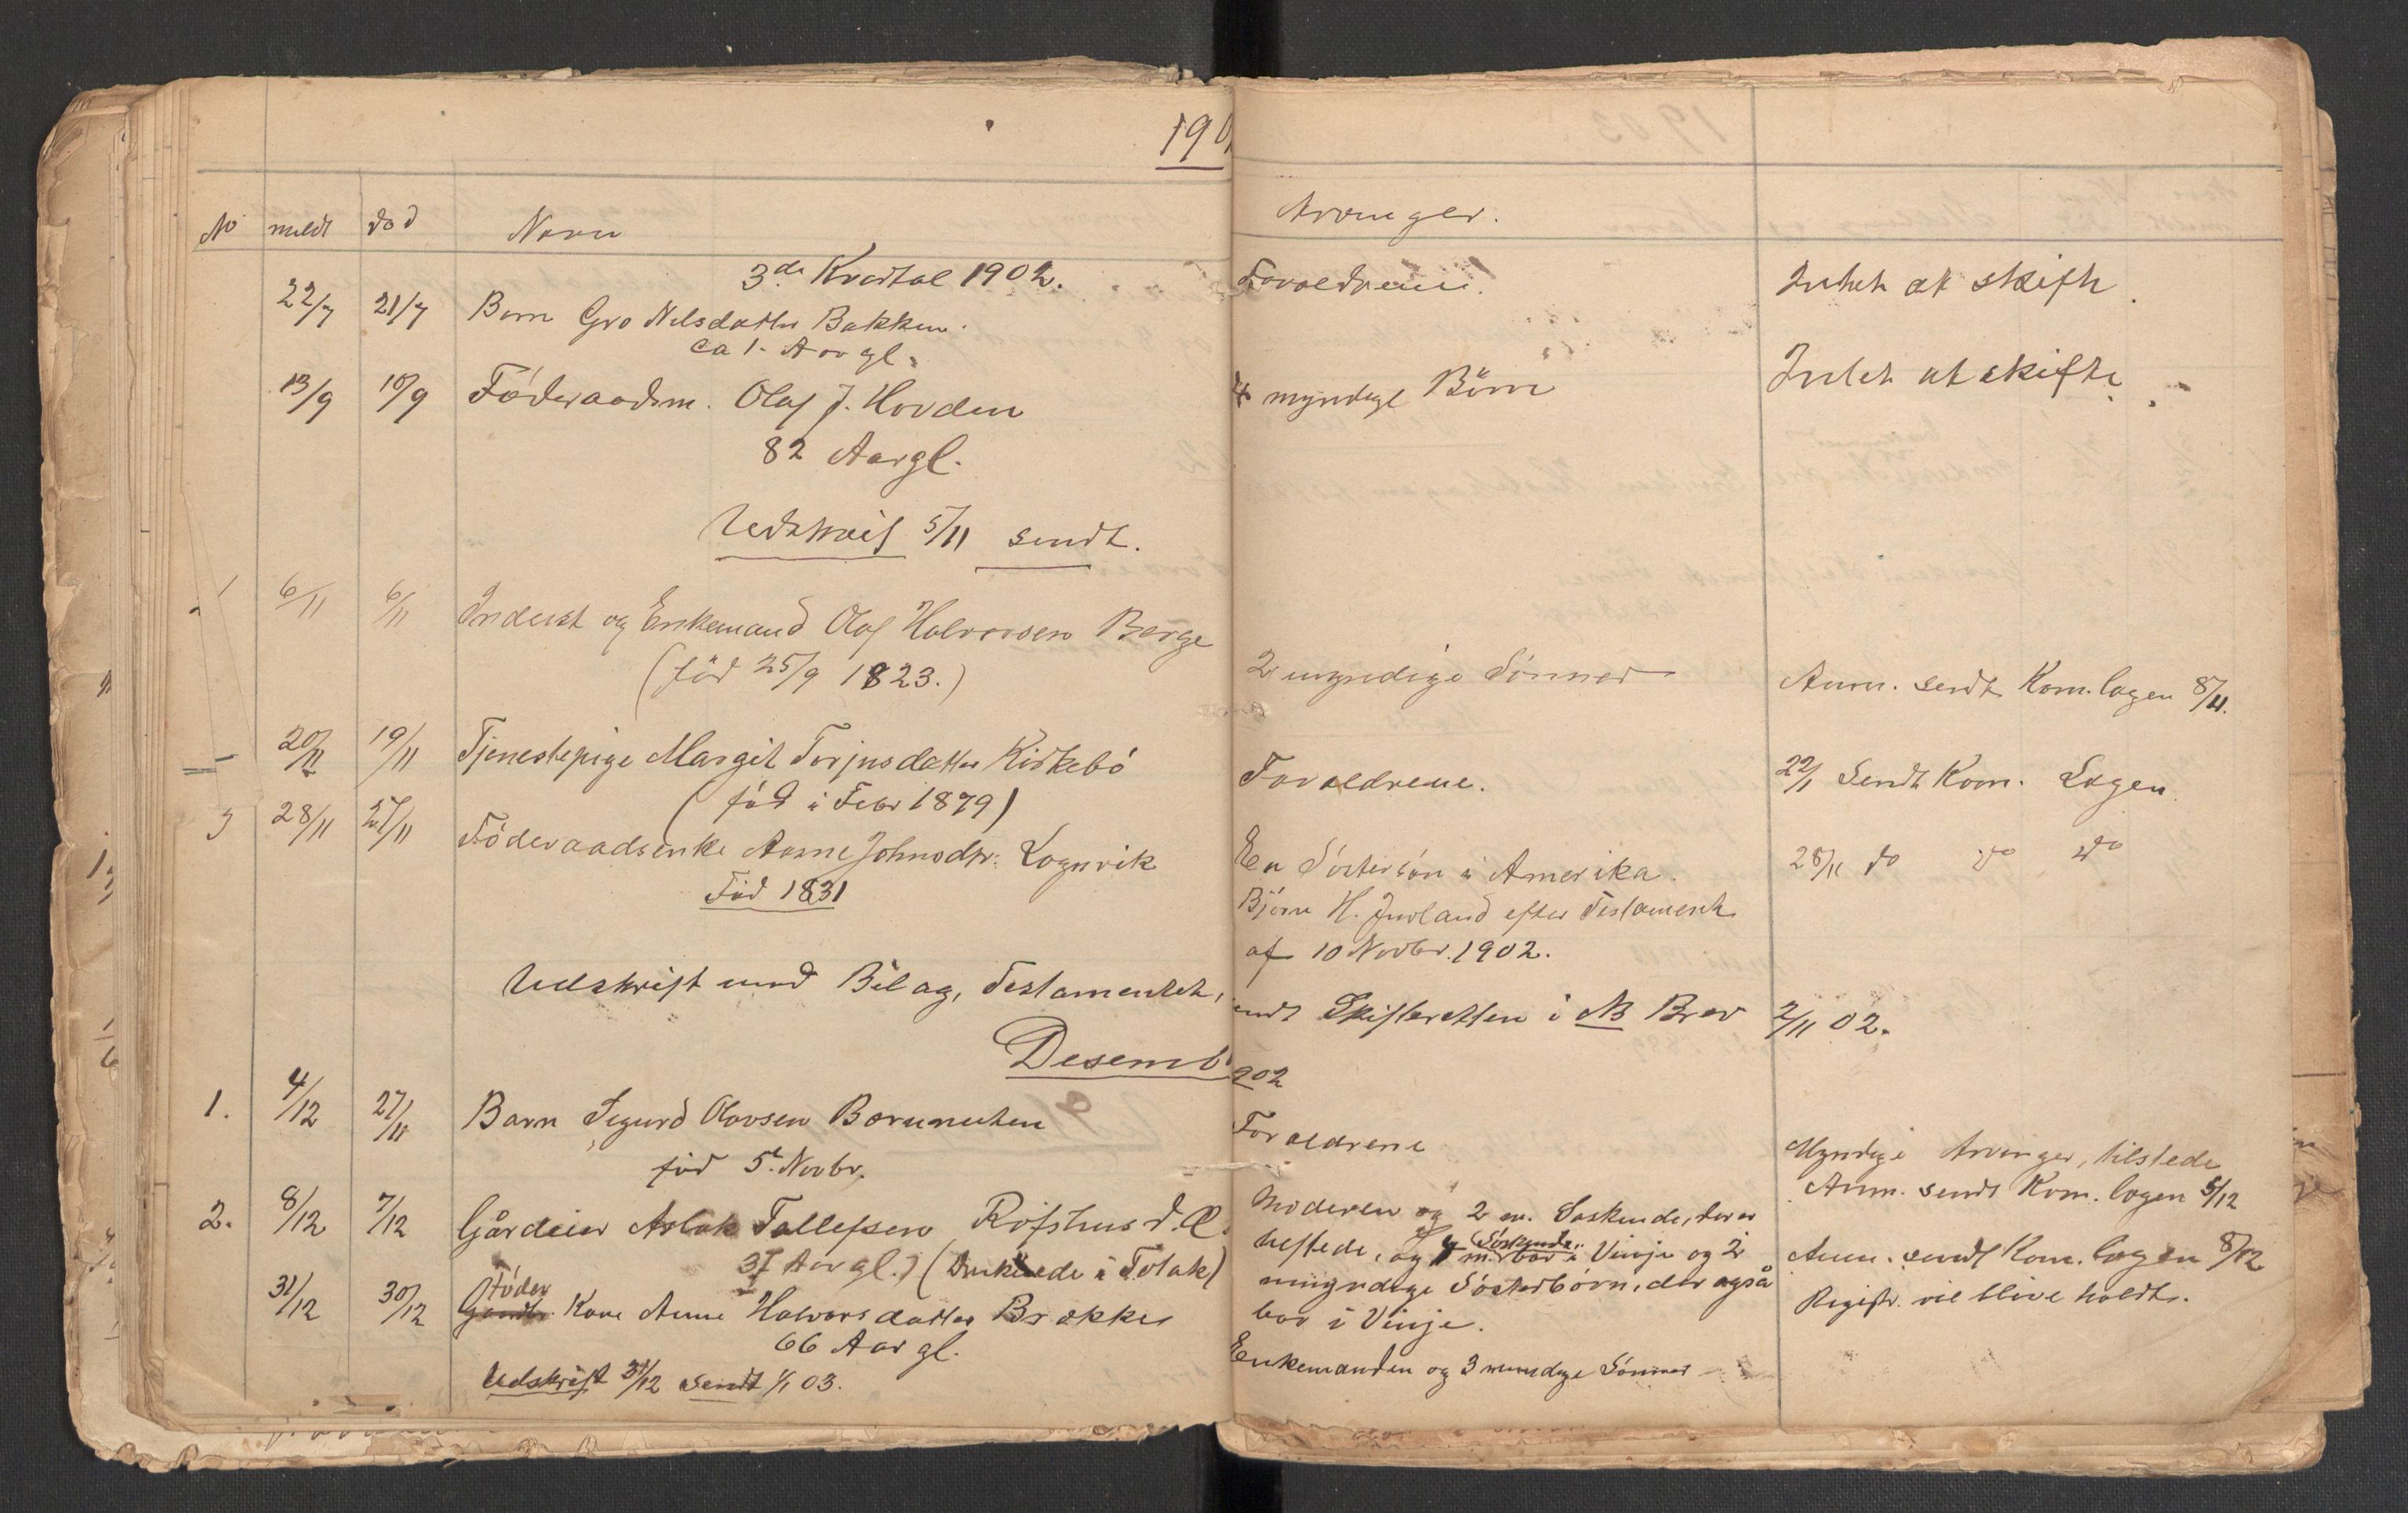 190
No meldt död Navn Arvinger.
3de Kvartal 1902.
22/7 21/7 Barn Gro Nilsdatter Bakken. Foraeldrene. Intet at skifte.
ca 1. Aar gl.
13/9 10/9 Föderaadsm. Olaf J. Hovden 4 myndige Börn Intet at skifte.
82 Aar gl.
Udskrift 5/11 sendt.
1 6/11 6/11 Inderst og Enkemand Olaf Halvorsen Berge
(föd 25/9 1823.) 2 myndige Sönner Anm. sendt Kom. lagen 8/11.
20/11 19/11 Tjenestepige Margit Torjusdatter Kirkebö Foraeldrene. 22/11 Sendt Kom. Lagen
(föd i Febr 1879)
3 28/11 27/11 Föderaadsenke Aasne Johnsdtr. Lognvik En Söstersön i Amerika. 28/11 do do do
Föd 1831 Björn H. Juvland efter Testament
af 10 Novbr. 1902.
Udskrift med Bilag, Testamentet, sendt Skifteretten i NB Brev 2/11 02.
Desemb 902
1. 4/12 27/11 Barn Sigurd Olavsen Bornuten Foraeldrene Myndige Arvinger, tilstede
föd 5t. Novbr. Anm. sendt Kom. lagen 5/12
2. 8/12 7/12 Gårdeier Aslak Tallefsen Röfshus d. Æ. Moderen og 2 m. Söskende, der er
37 Aar gl.) (Druknede i Totak) og 4 m. Söskende bor i Vinje og 2 Anm. sendt Kom. lagen 8/12
umyndige Sösterbörn, der også Registr. vil blive holdt.
bor i Vinje.
31/12 30/12 Föder Gaardbr. Kone Anne Halvorsdatter Brække Enkemanden og 3 myndige Sönner
66 Aar gl.
Udskrift 31/12 sendt 1/1 03.